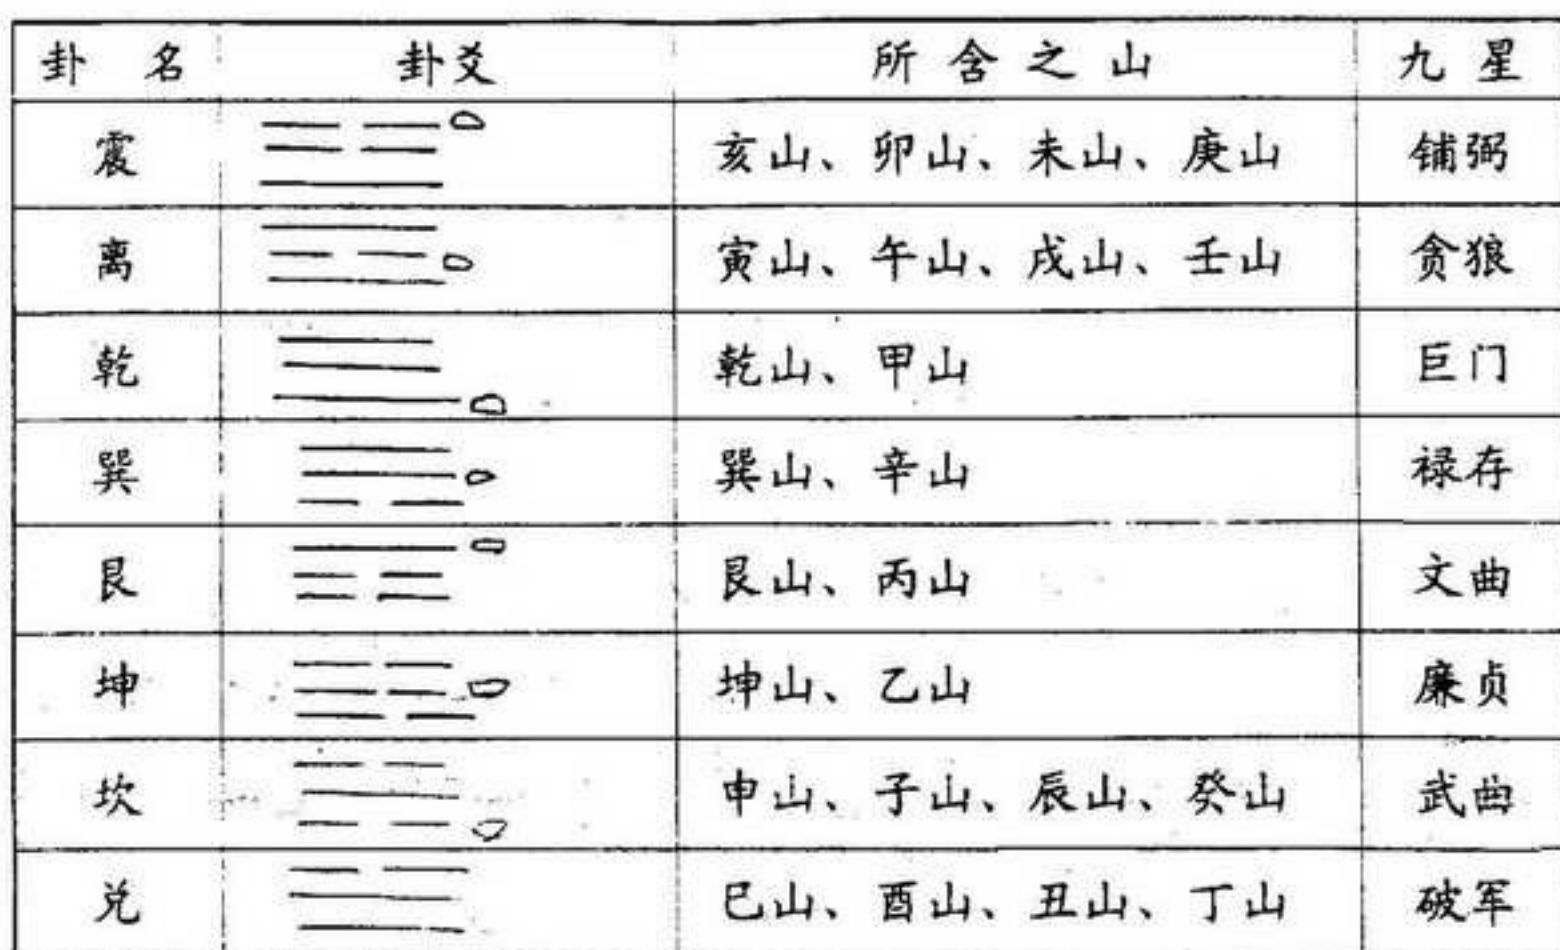 卦 名 卦爻 所含之山 九星
震 亥山、卯山、未山、庚山 铺弼
离 寅山、午山、戌山、壬山 贪狼
乾 乾山、甲山 巨门
巽 巽山、辛山 禄存
艮 艮山、丙山 文曲
坤 坤山、乙山 廉贞
坎 申山、子山、辰山、癸山 武曲
兑 巳山、酉山、丑山、丁山 破军